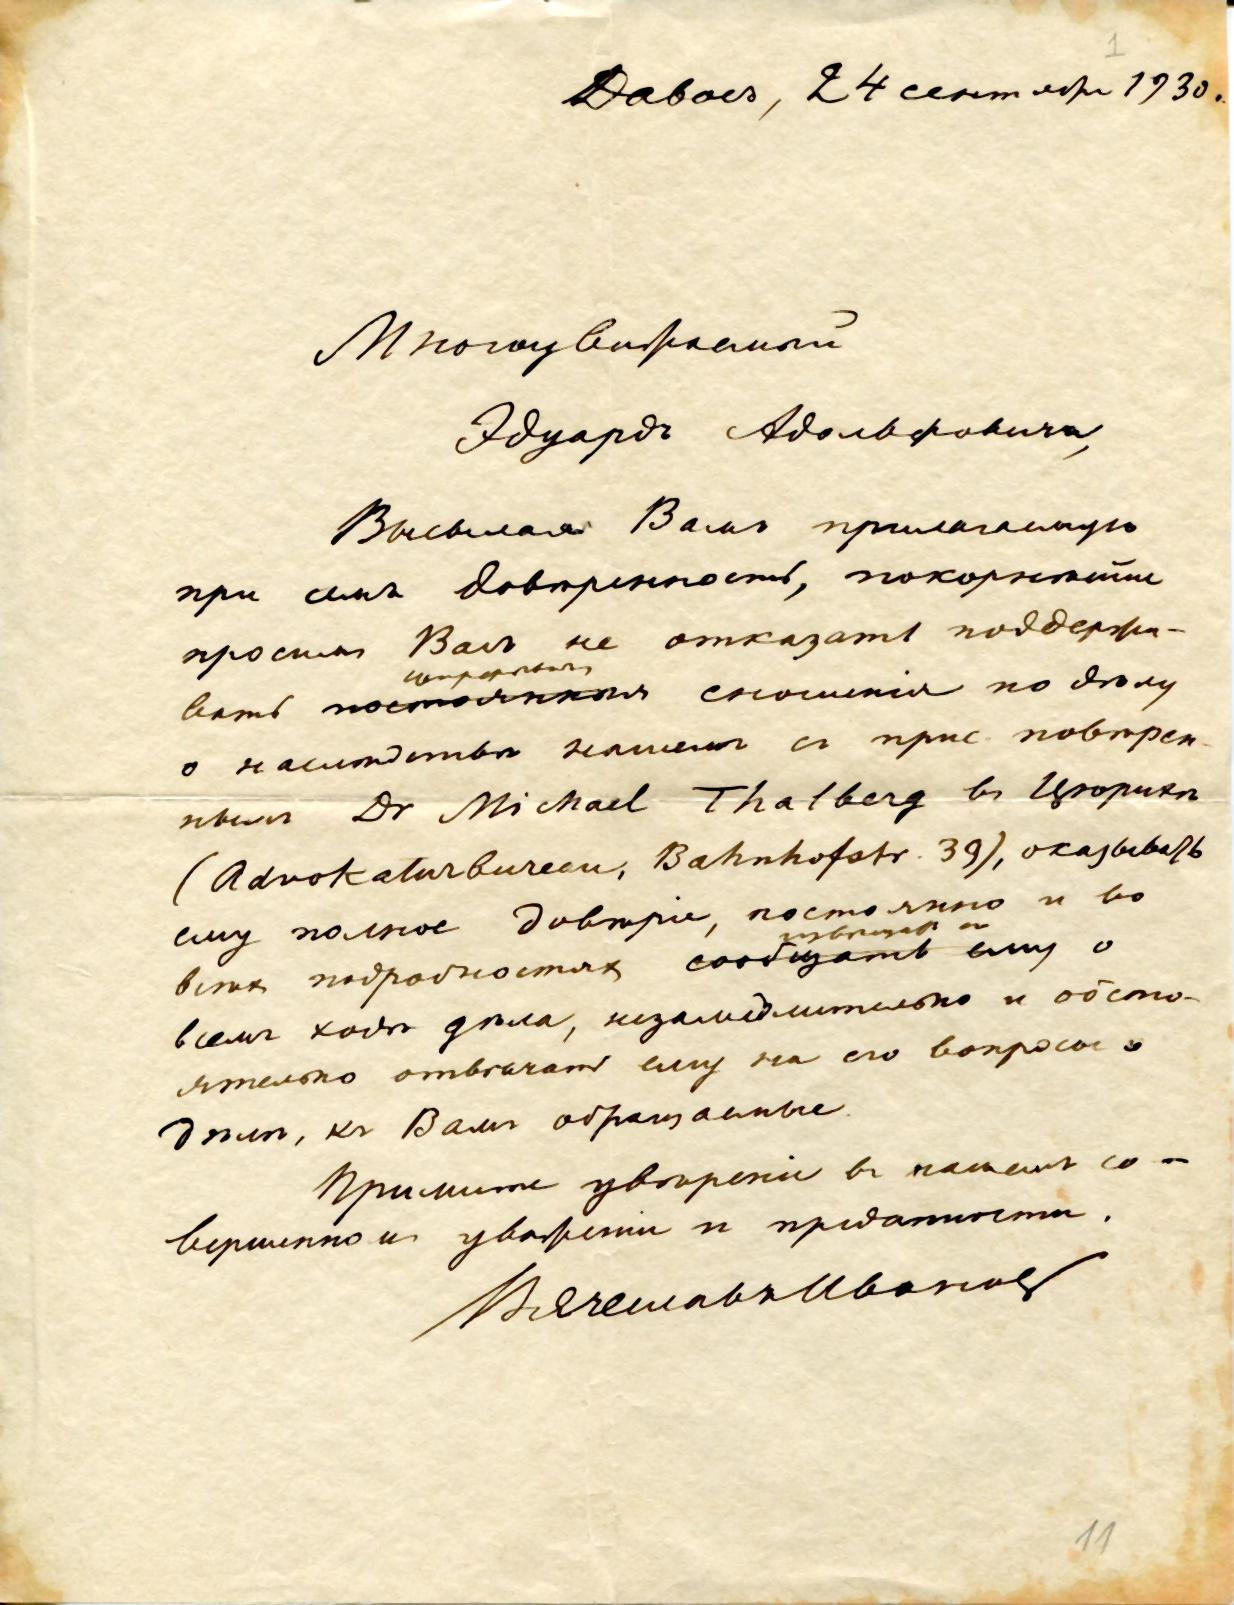 1
Давосъ, 24 сентября 1930.
Многоуважаемый
Эдуардъ Адольфовичъ,
Высылая Вамъ прилагаемую
при семъ довѣренность, покорнѣйше
просимъ Васъ не отказать поддержи-
вать постоянныя сношенія по дѣлу
о наслѣдствѣ нашемъ съ прис. повѣрен-
нымъ Dr Michael Thalberg въ Цюрихѣ
(Advokaturbureau, Bahnhofstr. 39), оказывать
ему полное довѣріе, постоянно и во
всѣхъ подробностяхъ сообщать ему о
всемъ ходѣ дѣла, незамедлительно и обсто-
ятельно отвѣчать ему на его вопросы о
дѣлѣ, къ Вамъ обращаемые.
Примите увѣреніе въ нашемъ со-
вершенномъ уваженіи и преданности.
Вячеславъ Ивановъ
11